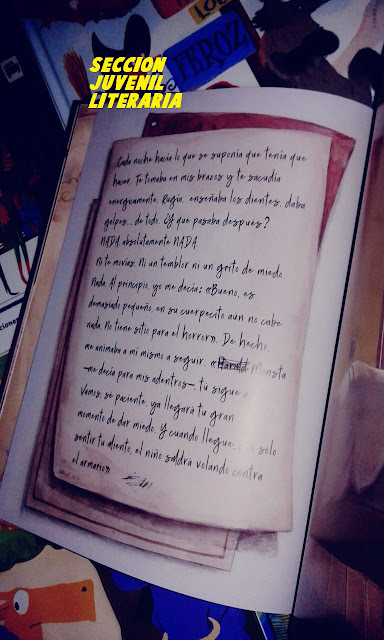 LOS
FEROZ
SECCION
JUVENIL
LITERARIA
Cada noche hacía lo que se suponía que tenía que
hacer. Te tomaba en mis brazos y te sacudía
enérgicamente. Rugía, enseñaba los dientes, daba
golpes... de todo. ¿Y qué pasaba después?
NADA, absolutamente NADA.
Ni te movías. Ni un temblor ni un grito de miedo.
Nada. Al principio, yo me decía: «Bueno, es
demasiado pequeño, en su cuerpecito aún no cabe
nada. No tiene sitio para el horror». De hecho,
me animaba a mí mismo a seguir. « Monsta
—me decía para mis adentros— tú sigue a
Vamos, sé paciente, ya llegará tu gran
momento de dar miedo. Y cuando llegue, solo
sentir tu aliento, el niño saldrá volando contra
el armario».